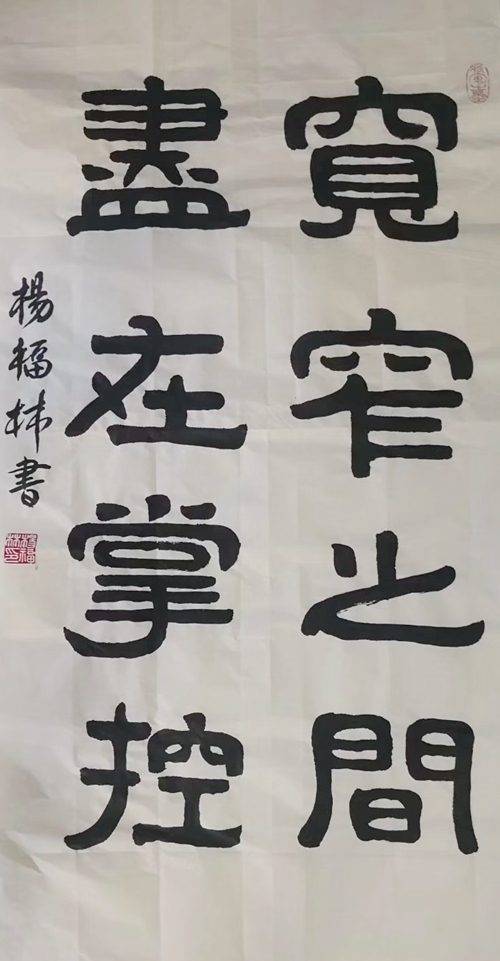 寬窄之間
盡在掌控
楊福林書